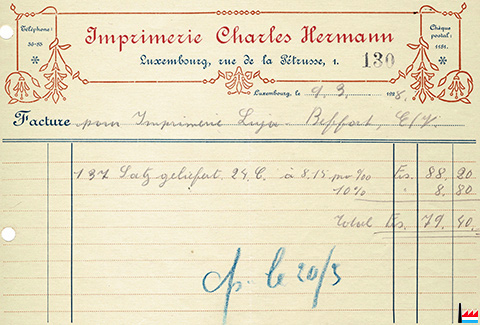 Téléphone:
38-83
Imprimerie Charles Hermann
Chèque
postal:
1181.
Luxembourg, rue de la Pétrusse, 1.
130
Luxembourg, le 9. 3. 1928.
Facture pour Imprimerie Luja-Beffort, E/V.
137 Satz geliefert. 24. C. à 8.14 pro ‰ Frs. 88. 20
10% " 8. 80
Total Frs. 79. 40.
le 20/3